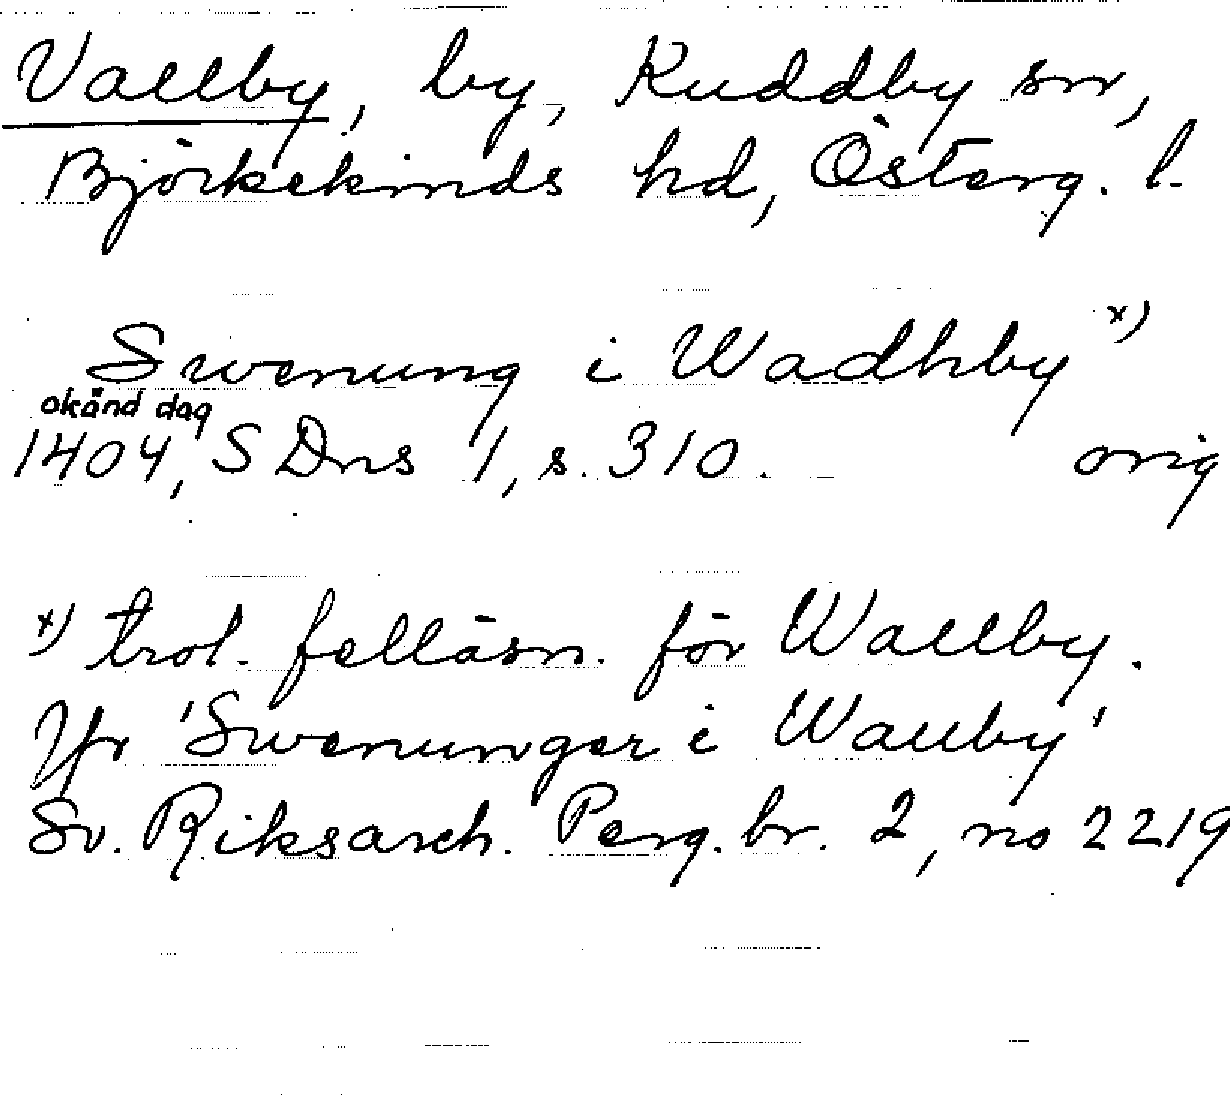 Vallby, by, Kuddby sn,
Björkekinds hd, Österg. l.
Swenung i Wadhby x)
okänd dag
1404, SDns 1, s. 310. orig
x) trol. felläsn. för Wallby.
Jfr 'Swenunger i Wallby'
Sv. Riksarch. Perg. br. 2, no 2219